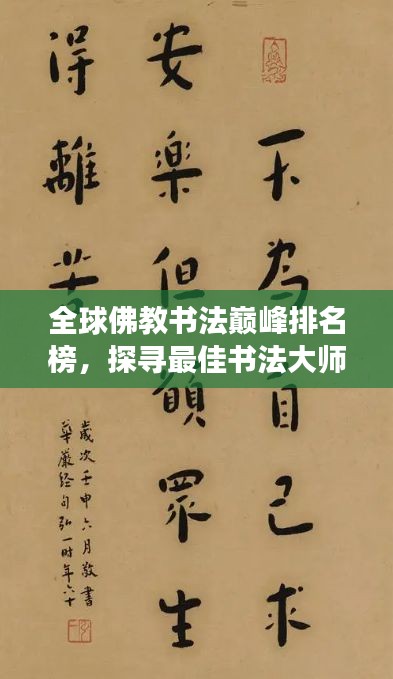 不為自己求
安樂但願眾生
得離苦
歲次壬申六月敬書
華嚴經句弘一時年六十
全球佛教书法巅峰排名
榜，探寻最佳书法大师